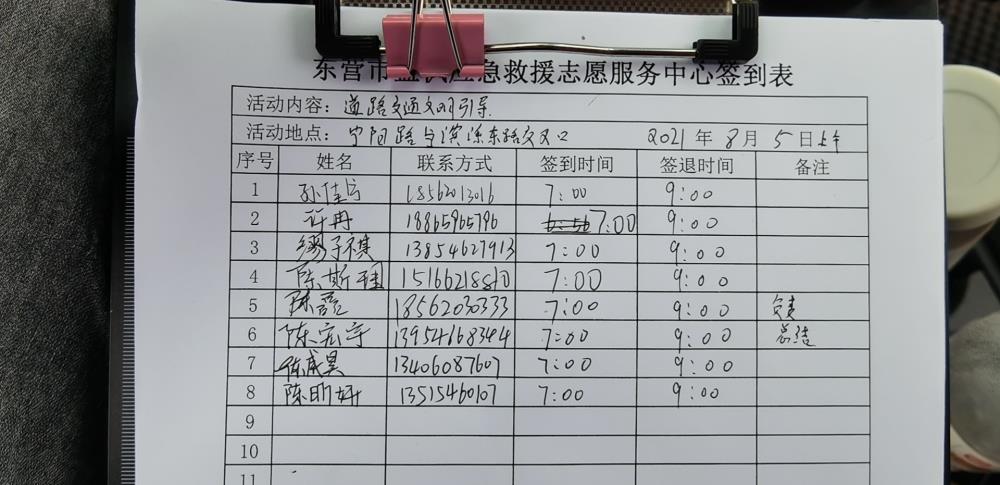 东营市 应急救援志愿服务中心签到表
活动内容：道路交通文明引导
活动地点： 路与 东路交叉口 2021年8月5日上午
序号 姓名 联系方式 签到时间 签退时间 备注
1 孙佳宁 18562013016 7:00 9:00
2 许冉 18865965796 6:56 7:00 9:00
3 子祺 13854627913 7:00 9:00
4 陈斯 15166218810 7:00 9:00
5 陈 18562030333 7:00 9:00 负责
6 陈宏宇 13954668344 7:00 9:00 总结
7 陈成昊 13406087607 7:00 9:00
8 陈明妍 13515460107 7:00 9:00
9
10
11